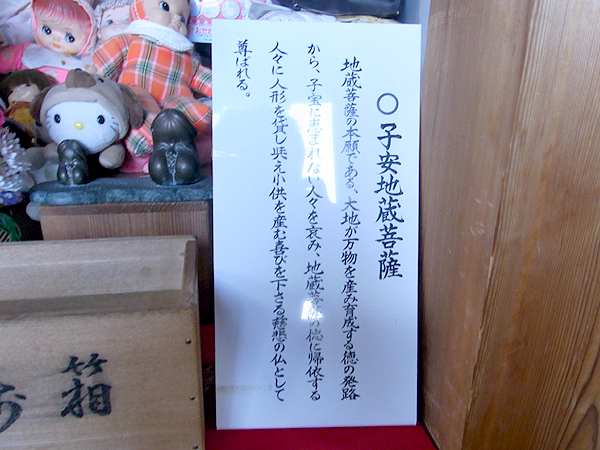 〇子安地蔵菩薩
地蔵菩薩の本願である、大地が万物を産み育成する徳の発路
から、子宝に恵まれない人々を哀み、地蔵菩薩の徳に帰依する
人々に人形を貸し与え小供を産む喜びを下さる慈悲の仏として
尊ばれる。
箱